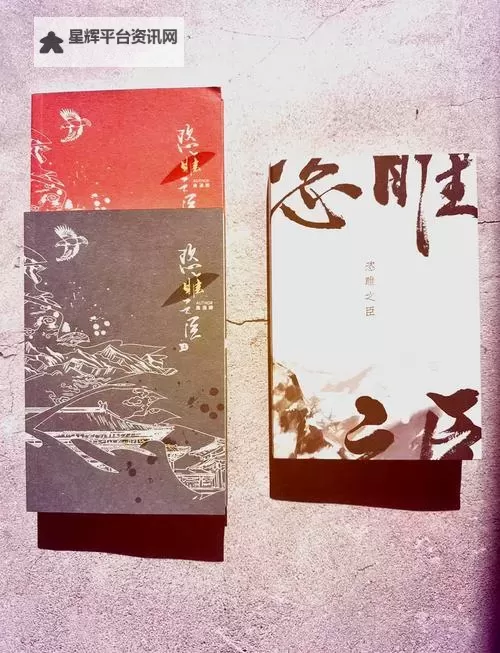 星辉平台资讯网
恣睢之臣
AUTHOR
恣睢之臣
AUTHOR
恣睢
恣睢之臣
之臣